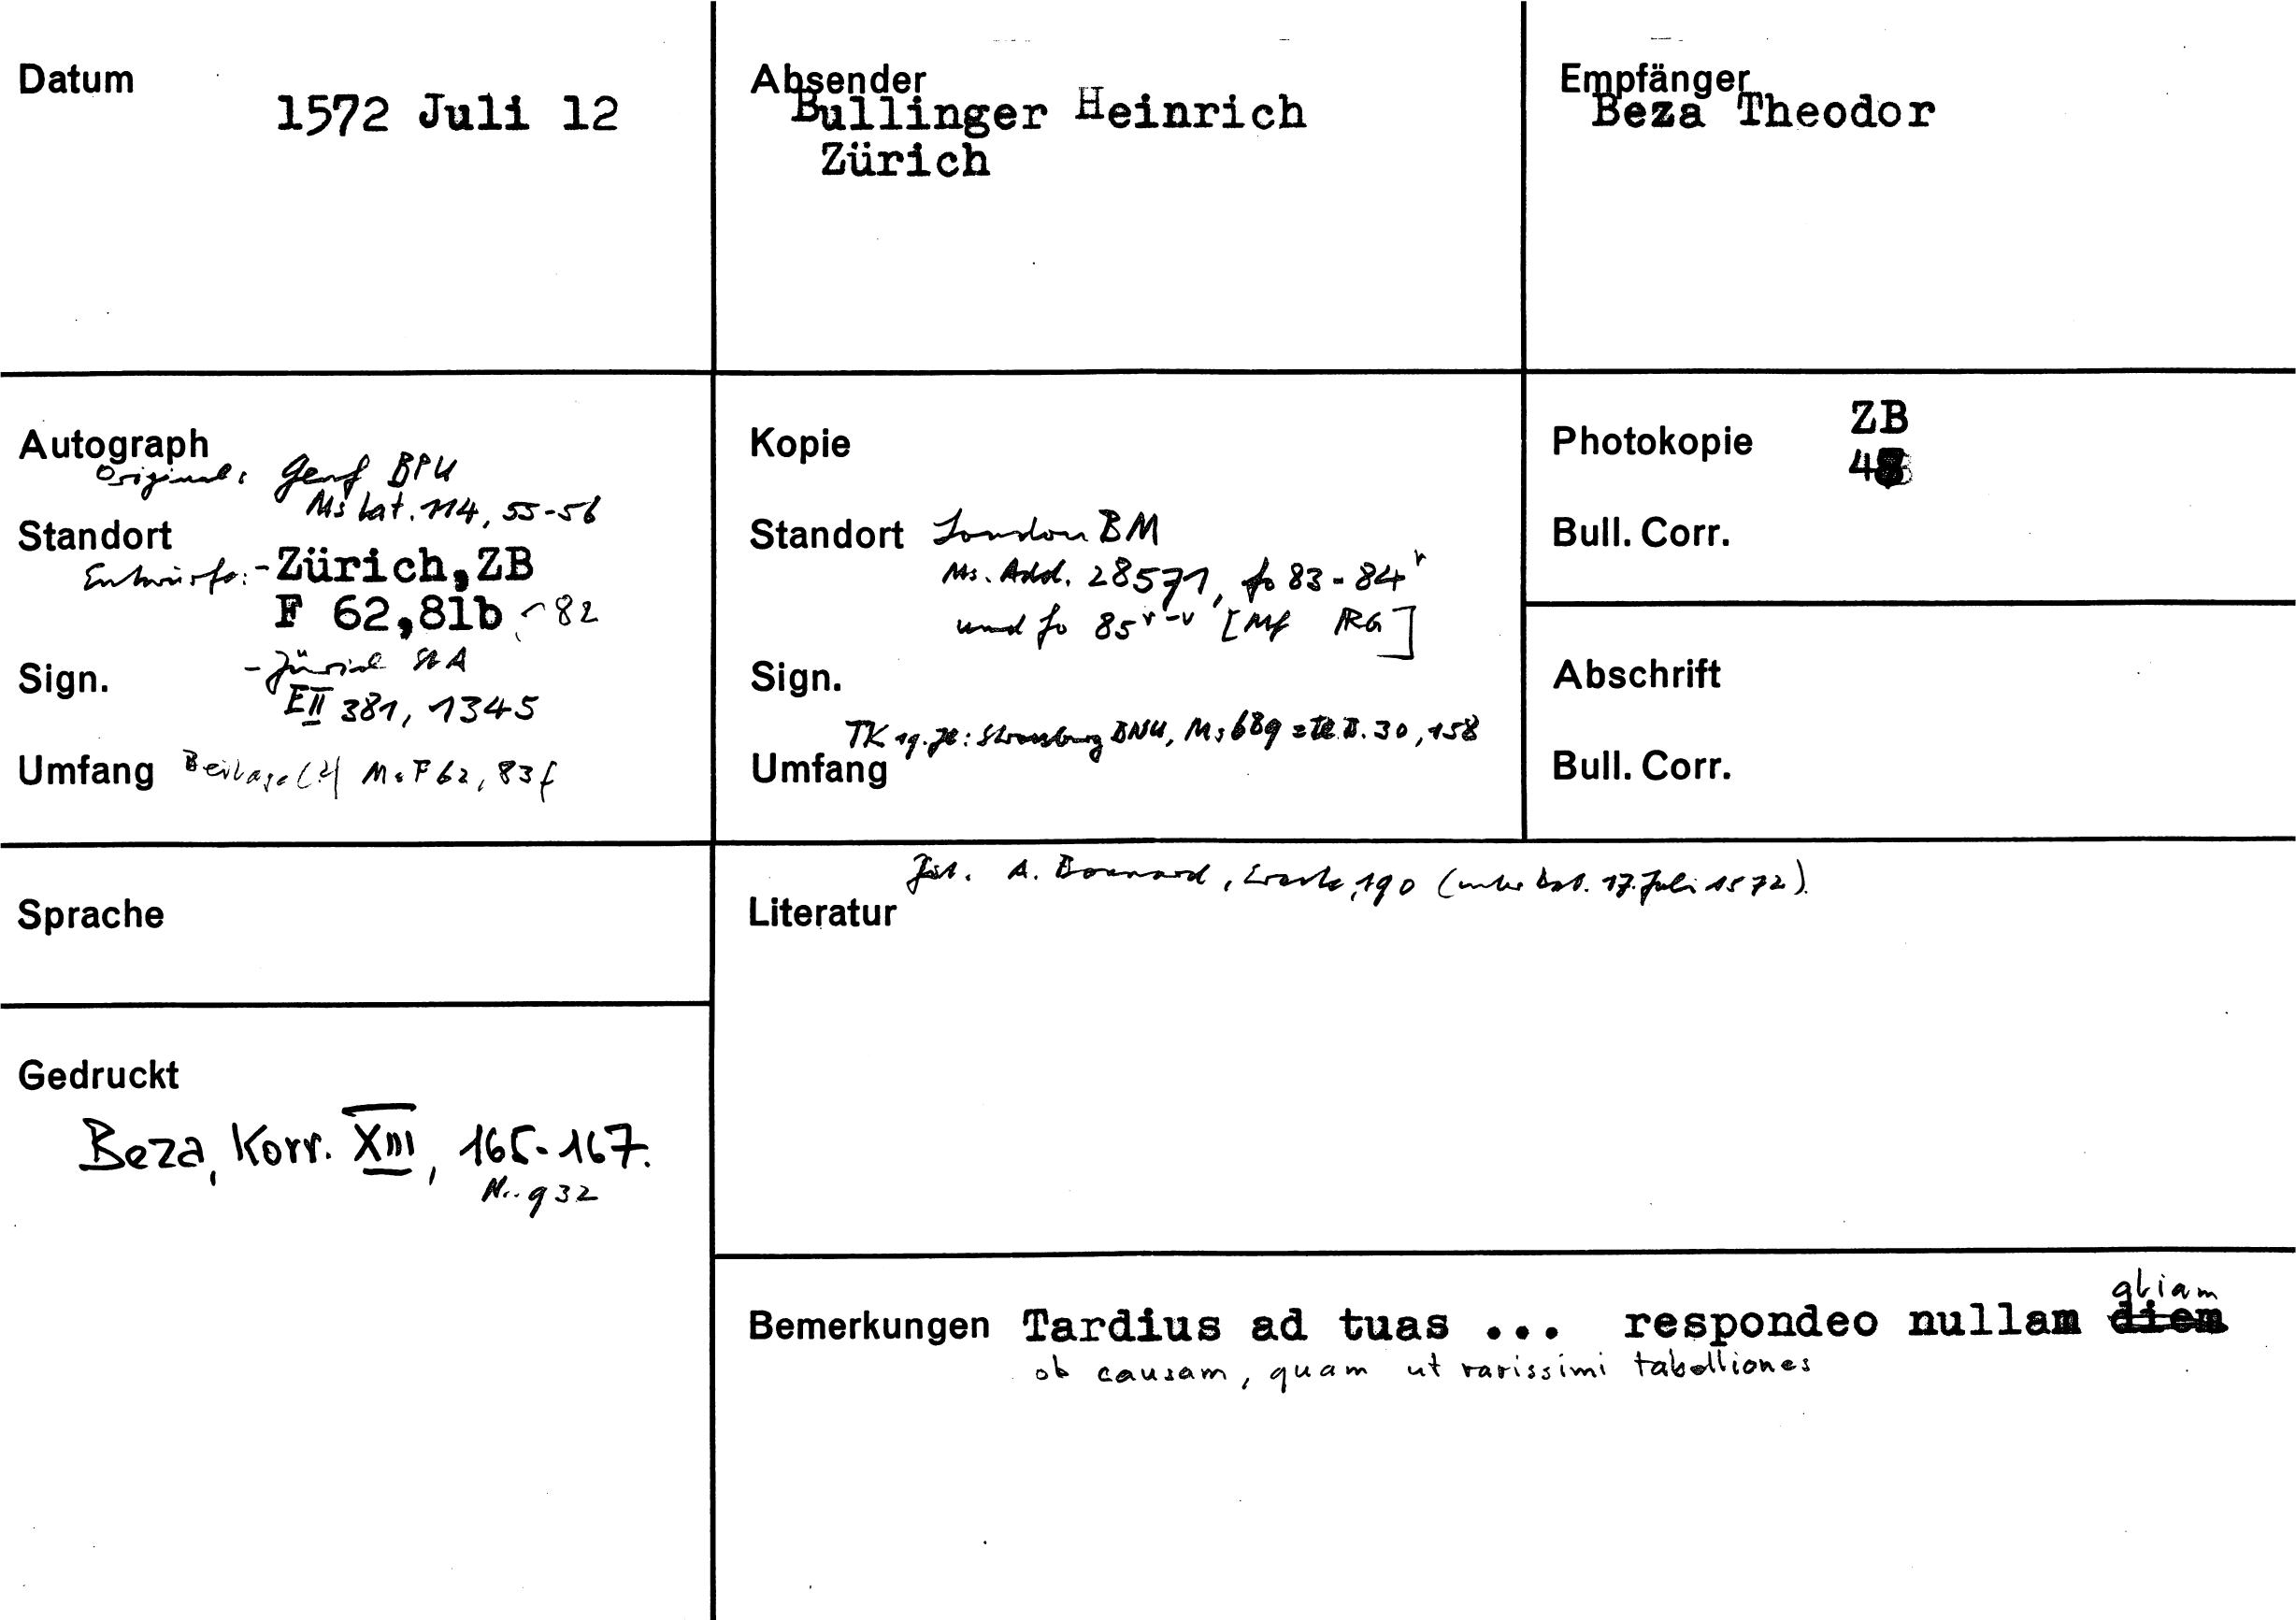 Datum
1572 Juli 12
Absender
Bullinger Heinrich
Zürich
Empfänger
Beza Theodor
Autograph
Original: Genf BPU
Ms lat. 114, 55-56
Standort
Entwürfe: -Zürich,ZB
F 62,81b -82
Sign.
- Zürich StA
E II 381, 1345
Umfang Beilage (?) Ms F 62, 83f
Kopie
Standort London BM
Ms. Add. 28571, fo 83-84r
und fo 85r-v [Mf IRG]
Sign.
TK 19. Jh: Strassburg BNU, Ms 689 = 30, 158
Umfang
Photokopie ZB
Bull. Corr.
Abschrift
Bull. Corr.
Sprache
Literatur
A. Bonnard, 190 (unter Dat. 17. Juli 1572).
Gedruckt
Beza, Korr. XIII, 165-167.
Nr. 932
Bemerkungen Tardius ad tuas ... respondeo nullam diem aliam
ob causam, quam ut rarissimi tabelliones